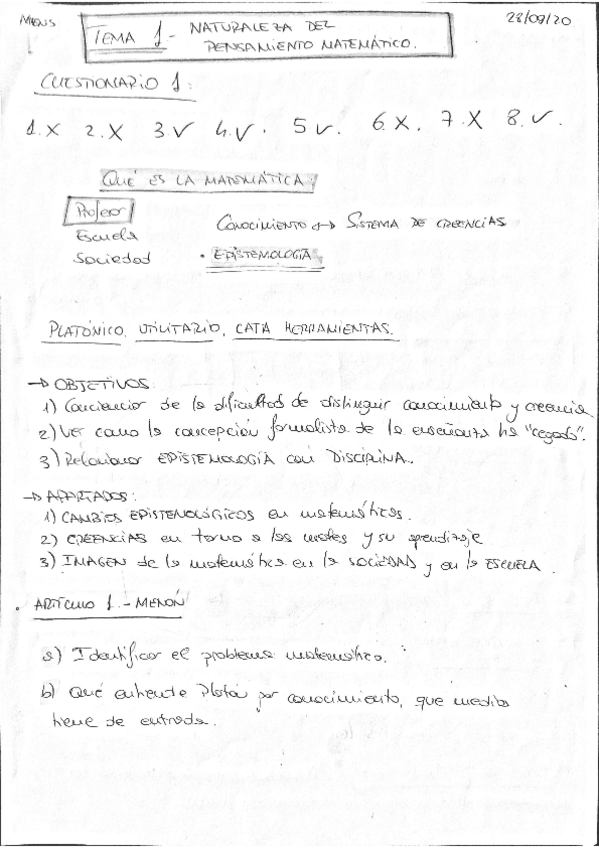 MENS
28/09/20
TEMA 1.- NATURALEZA DEL
PENSAMIENTO MATEMÁTICO.
CUESTIONARIO 1:
1. X 2. X 3. V 4. V. 5 V. 6. X. 7. X 8. V.
QUÉ ES LA MATEMÁTICA:
Profesor
CONOCIMIENTO ↔ SISTEMA DE CREENCIAS
Escuela
Sociedad
• EPISTEMOLOGÍA
PLATÓNICO, UTILITARIO, CAJA HERRAMIENTAS.
→ OBJETIVOS:
1) Conciencior de la dificultad de distinguir conocimiento y creencia
2) Ver como la concepción formalista de la enseñanza ha "cegado".
3) Relacionar EPISTEMOLOGÍA con DISCIPLINA.
→ APARTADOS:
1) CAMBIOS EPISTEMOLÓGICOS en matemáticas.
2) CREENCIAS en torno a las mates y su aprendizaje
3) IMAGEN de la matemática en la SOCIEDAD y en la ESCUELA.
• ARTÍCULO 1.- MENÓN
a) Identificar el problema matemático.
b) Qué entiende Platón por conocimiento, que medio
tiene de entrada.